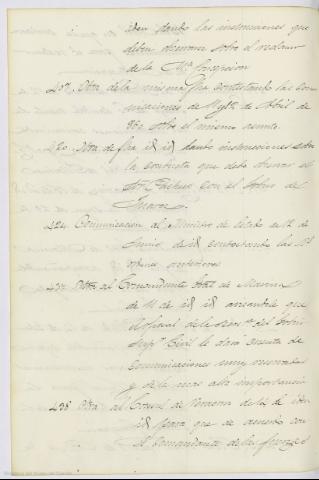 idem dando las instrucciones que
deben observar sobre el reclamo
de la Ma. Concepcion
Otra de la misma fha contestando las comu
nicaciones de Mzo. de Abril de
sobre el mismo asunto.
Otra de fha id id dando instrucciones sobre
la conducta que debe observar el
Sr. Pacheco con el Gobno de
Juarez.
424 Comunicacion al Ministro de Estado de 12 de
Junio de id contestando las Rs.
ordenes anteriores
Otra al Comandante Gral de Marina
de 11 de id id anunciando que
el oficial de la Secra. del Gobno
Supor. Civil le dará cuenta de
comunicaciones muy reservadas
y de la mas alta importancia
Otra al Consul de Veracruz de 12 de idem
id para que de acuerdo con
el Comandante de las fuerzas